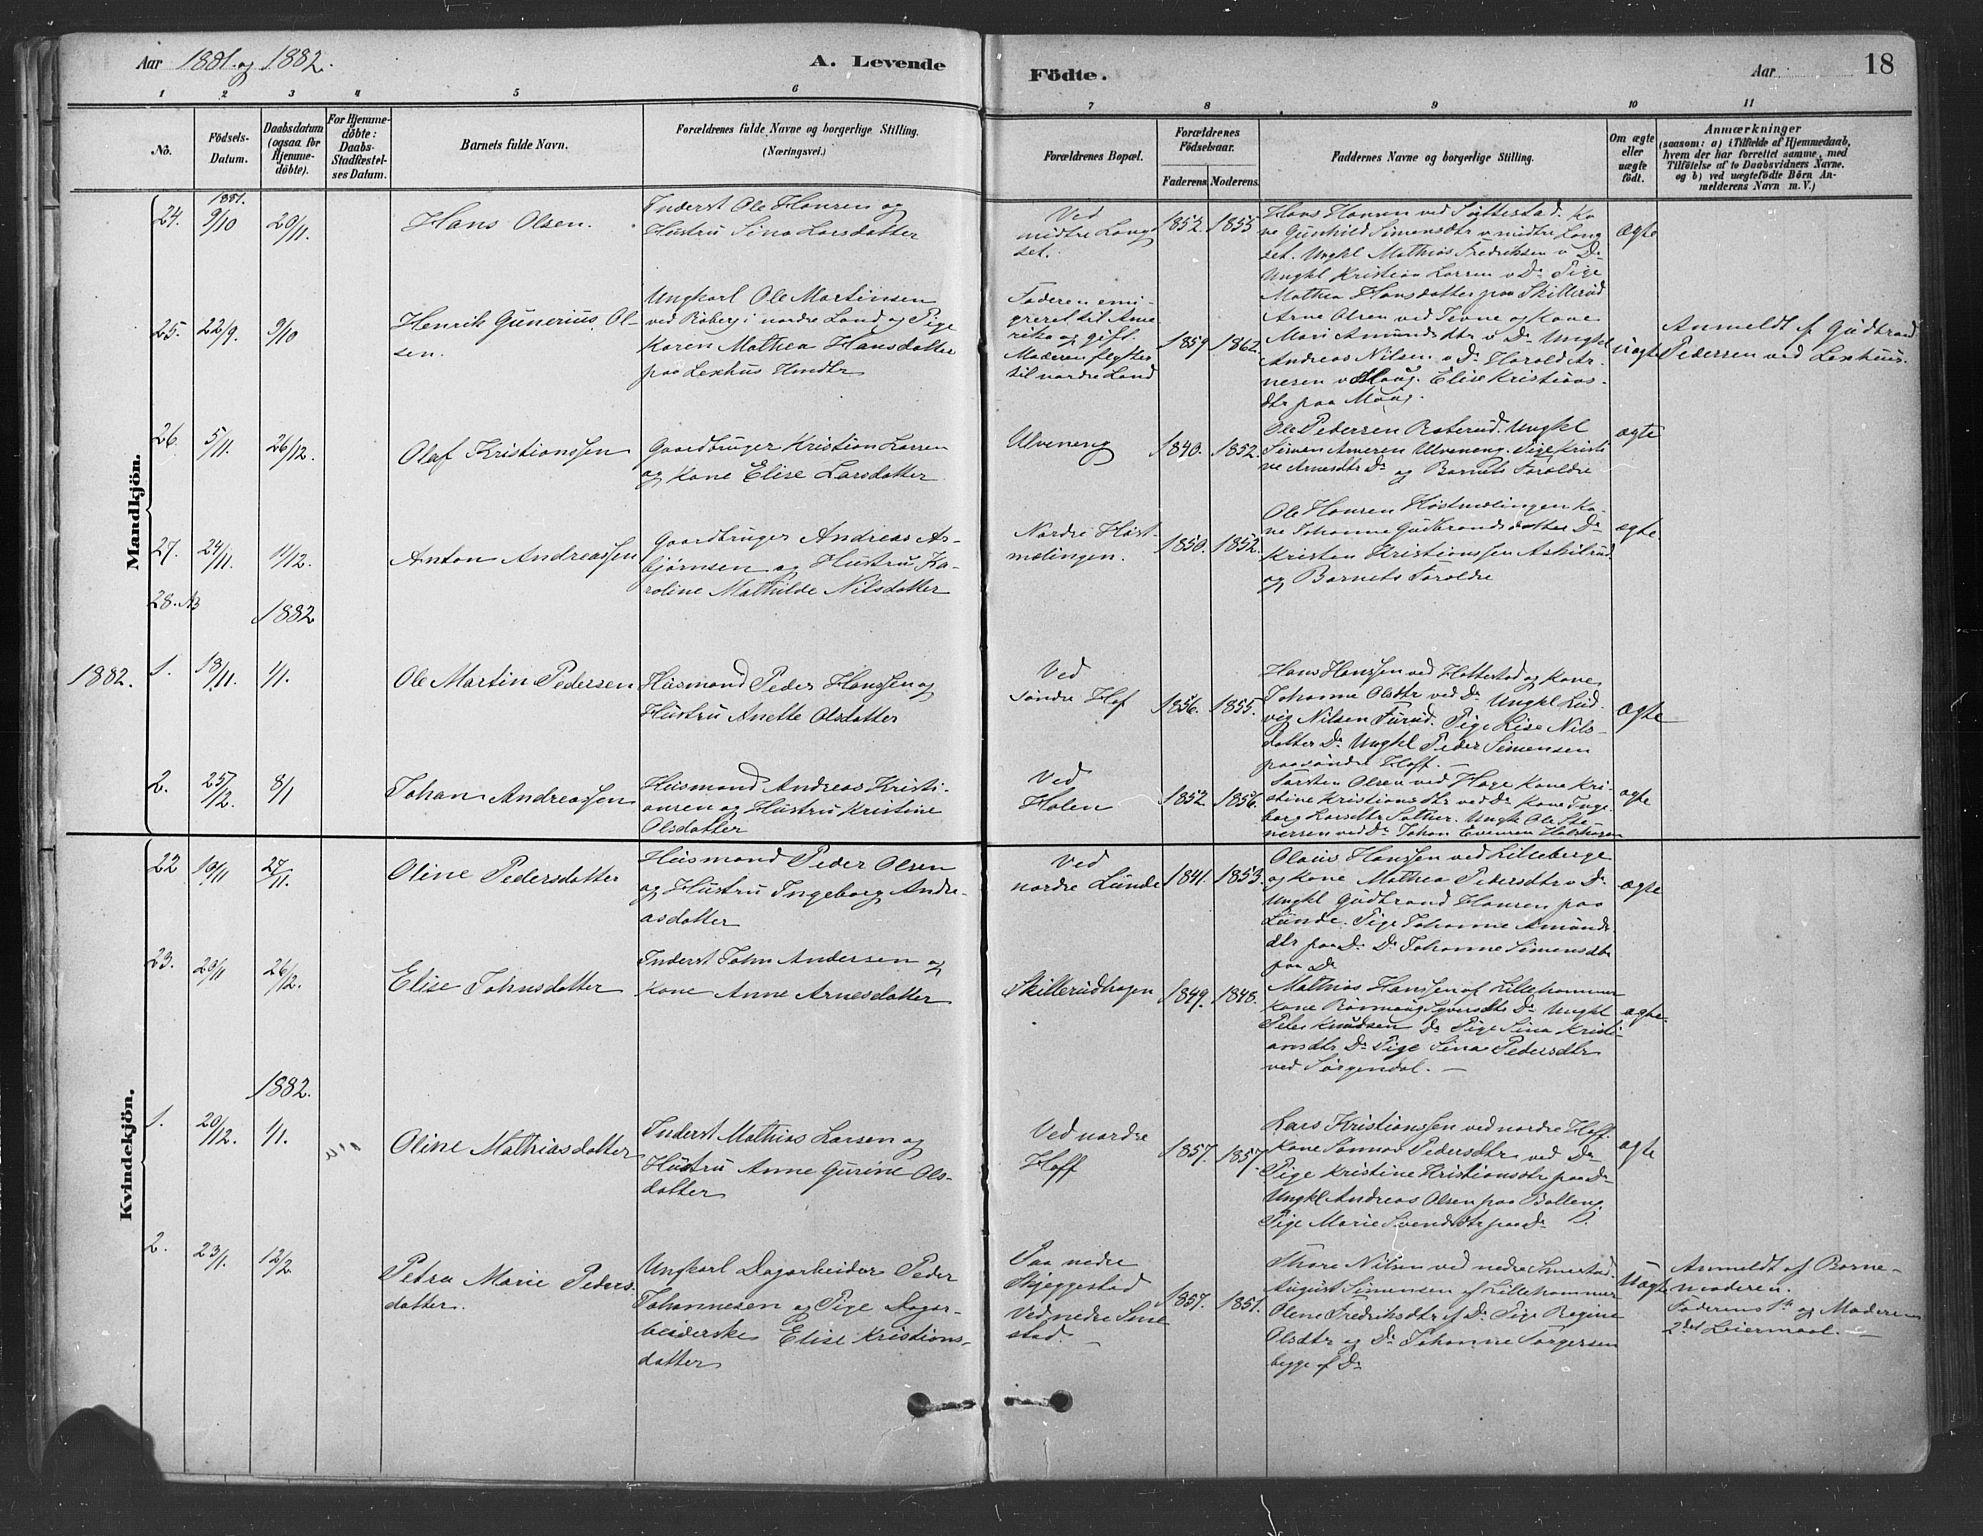 Aar 1881. og 1882.
A. Levende
Födte.
Aar
18
1
2
3
4
5
6
7
8
9
10
11
No.
Födsels-
Datum.
Daabsdatum
(ogsaa for
Hjemme-
döbte).
For Hjemme-
döbte:
Daabs-
Stadfæstel-
ses Datum.
Barnets fulde Navn.
Forældrenes fulde Navne og borgerlige Stilling.
(Næringsvei.)
Forældrenes Bopæl.
Forældrenes
Födselsaar.
Faderens
Moderens.
Faddernes Navne og borgerlige Stilling.
Om ægte
eller
uægte
födt.
Anmærkninger
(saasom: a) i Tilfælde af Hjemmedaab,
hvem der har forrettet samme, med
Tilföielse af to Daabsvidners Navne.
og b) ved uægtefödte Börn An-
melderens Navn m. V.)
Mandkjön.
1881.
24. 9/10 20/11.
Hans Olsen.
Inderst Ole Hansen og
Hustru Sina Larsdatter
Ved
midtre Lang
set.
1852. 1855
Hans Hansen ved Søttestad. Ko
ne Gunhild Simensdtr v midtre Lang
set. Ungkl Mathias Fredriksen v Do
Ungkl Kristian Larsen v Do Pige
Mathea Hansdatter paa Skillerud
ægte
25. 22/9. 9/10
Henrik Gunerius Ol-
sen.
Ungkarl Ole Martinsen
ved Røberg i nordre Land og Pige
Karen Mathea Hansdatter
paa Lexhus Hmdtr
Faderen emi-
greret til Ame
rika og gift.
Moderen flytter
til nordre Land
1859 1862.
Arne Olsen ved Tevne og Kone
Mari Amundsdtr v Do Ungkl
Andreas Nilsen v Do Harold Ar-
nesen v Haug. Elise Kristians-
dtr paa Haug.
uægte
Anmeldt f Gudbrand
Pedersen ved Lexhus.
26. 5/11. 26/12.
Olaf Kristianssen
Gaardbruger Kristian Larsen
og Kone Elise Larsdatter
Ulveneng
1840. 1852.
Ole Pedersen Roterud. Ungkl
Simen Arnesen Ulveneng. Pige Kristi
ne Arnesdtr Do og Barnets Forældre
ægte
27. 24/11. 11/12.
Anton Andreassen
Gaardbruger Andreas As-
bjørnsen og Hustru Ka-
roline Mathilde Nilsdatter
Nordre Høst-
mælingen.
1850. 1852.
Ole Hansen Høstmælingen Ko-
ne Johanne Gudbrandsdatter Do
Kristen Kristianssen
og Barnets Forældre
ægte.
28.
1882
1882.
1. 13/11. 1/1.
Ole Martin Pedersen
Husmand Peder Hanssen og
Hustru Anette Olsdatter
Ved
søndre Hof
1856. 1855.
Hans Hanssen ved Hottestad og Kone
Johanne Olsdtr ved Do Ungkl Lud-
vig Nilsen Furud. Pige Lise Nils-
datter Do Ungkl Peder Simensen
paa søndre Hoff.
ægte
2. 25/12. 8/1
Johan Andreassen
Husmand Andreas Kristi-
ansen og Hustru Kristine
Olsdatter
Ved
Holen
1852. 1856.
Torsten Olsen ved Hage Kone Kri-
stine Kristiansdtr ved Do Kone Inge-
borg Larsdtr Ungk Ole Ste-
nersen ved Do Johan Evensen
ægte
Kvindekjön.
22 10/11 27/11.
Oline Pedersdatter
Husmand Peder Olsen
og Hustru Ingeborg Andre-
asdatter
Ved
nordre Lunde
1841. 1853.
Olaus Hanssen ved Lilleberge
og Kone Mathea Pedersdtr v Do
Ungkl Gudbrand Hansen paa
Lunde. Pige Johanne Amunds-
dtr paa Do Do Johanne Simensdtr
paa Do
ægte
23. 23/11 26/12.
Elise Johnsdatter
Inderst John Andersen og
Kone Anne Arnesdatter
Skillerudhagen
1849. 1848.
Mathias Hanssen af Lillehammer
Kone Rønnaug Syversdtr Do Ungkl
Peter Knudsen Do Pige Sina Kristi-
ansdtr Do Pige Sina Pedersdtr
ved Sørgendal.
ægte.
1882.
1. 20/12. 1/1.
Oline Mathiasdatter
Inderst Mathias Larsen og
Hustru Anne Gurine Ols-
datter
Ved nordre
Hoff
1857. 1857.
Lars Kristianssen ved nordre Hoff.
Kone Sønnao Pedersdtr ved Do
Pige Kristine Kristiansdtr paa Do
Ungkl Andreas Olsen paa Balleng
Pige Marie Svendsdtr paa Do
ægte
2. 23/1. 12/2.
Petra Marie Peders-
datter.
Ungkarl Dagarbeider Peder
Johannesen og Pige Dagar-
beiderske Elise Kristians-
datter
Paa nedre
Skjeggestad
Ved nedre Sme
stad.
1857. 1851.
Thore Nilsen ved nedre Smestad
August Simensen af Lillehammer
Olene Fredriksdtr af Do Pige Regine
Olsdtr og Do Johanne Torgersen
begge af Do
Uægte
Anmeldt af Barne-
moderen.
Faderens 1ste og Moderens
2det Leiermaal.